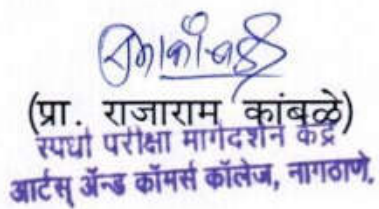 (प्रा. राजाराम कांबळे)
स्पर्धा परीक्षा मार्गदर्शन केंद्र
आर्टस् ॲन्ड कॉमर्स कॉलेज, नागठाणे.